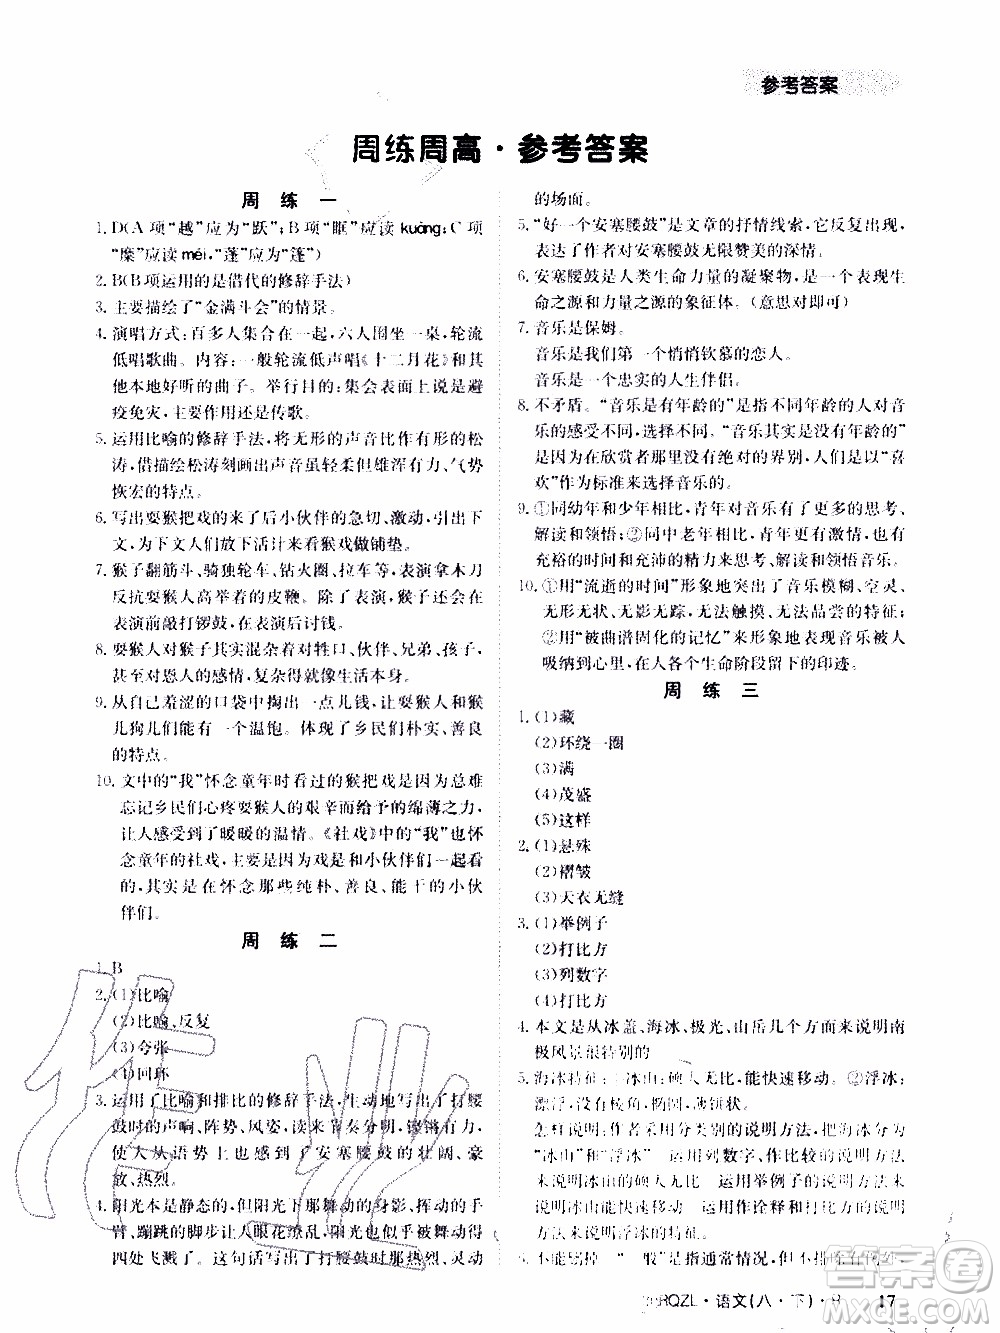 参考答案
周练周高·参考答案
周 练 一
1. D(A 项“越”应为“跃”;B 项“眶”应读 kuàng;C 项
“糜”应读 méi,“蓬”应为“篷”)
2. B(B 项运用的是借代的修辞手法)
3. 主要描绘了“金满斗会”的情景。
4. 演唱方式:百多人集合在一起,六人围坐一桌,轮流
低唱歌曲。内容:一般轮流低声唱《十二月花》和其
他本地好听的曲子。举行目的:集会表面上说是避
疫免灾,主要作用还是传歌。
5. 运用比喻的修辞手法,将无形的声音比作有形的松
涛,借描绘松涛刻画出声音虽轻柔但雄浑有力、气势
恢宏的特点。
6. 写出耍猴把戏的来了后小伙伴的急切、激动,引出下
文,为下文人们放下活计来看猴戏做铺垫。
7. 猴子翻筋斗、骑独轮车、钻火圈、拉车等,表演拿木刀
反抗耍猴人高举的皮鞭。除了表演,猴子还要在
表演前敲打锣鼓,在表演后讨钱。
8. 耍猴人对猴子其实混杂着对牲口、伙伴、兄弟、孩子,
甚至对恩人的情感。复杂得很像生活本身。
9. 从自己羞涩的口袋中掏出一点儿钱,让耍猴人和猴
儿狗儿们能有一个温饱。体现了乡民们朴实、善良
的特点。
10. 文中的“我”怀念童年时看过的猴把戏是因为总难
忘记乡民们心疼耍猴人的艰辛而给予的绵薄之力,
让人感受到了暖暖的温情。《社戏》中的“我”也怀
念童年的社戏,主要是因为戏是和小伙伴们一起看
的,旨在怀念那些纯朴、善良、能干的小伙
伴们。
周 练 二
1. B
2. (1)比喻
(2)比喻、反复
(3)夸张
(4)回环
3. 运用了比喻和排比的修辞手法,生动地写出了打腰
鼓时的声响、阵势、风姿,读来节奏分明,铿锵有力,
使人从语势上感受到了安塞腰鼓的壮阔、豪
放、热烈。
4. 阳光本是静态的,但阳光下那舞动的身影、挥动的手
臂、蹦跳的脚步让人眼花缭乱,阳光也像在舞动、在
四处飞溅了。这句话写出了打腰鼓时的热烈、灵动
的场面。
5. “好一个安塞腰鼓”是文章的抒情线索,它反复出现,
表达了作者对安塞腰鼓无限赞美的深情。
6. 安塞腰鼓是人类生命力量的凝聚物,是中华民族生
命之源和力量之源的象征体。(意思对即可)
7. 音乐是保姆。
音乐是我们第一个悄悄钦慕的恋人。
音乐是一个忠实的人生伴侣。
8. 不矛盾。“音乐是有年龄的”是指不同年龄的人对音
乐的感受不同,选择不同。“音乐是没有年龄的”是
因为在欣赏者那里没有绝对的界别,人们只是以“喜
欢”作为标准来选择音乐的。
9. ①同幼年和少年相比,青年对音乐有了更多的思考、
解读和领悟;②同中老年相比,青年更有激情,也有
充裕的时间和充沛的精力来思考、解读和领悟音乐。
10. ①用“流逝的时间”形象地突出了音乐模糊、空灵、
无形无状、无影无踪,无法触摸、无法品尝的特征;
②用“被曲谱固化的记忆”来形象地表现音乐被
吸纳到心里,在各个生命阶段留下的印迹。
周 练 三
1. (1)藏
(2)环绕一圈
(3)满
(4)茂盛
(5)这样
2. (1)悬殊
(2)褶皱
(3)天衣无缝
3. (1)举例子
(2)打比方
(3)列数字
(4)打比方
4. 本文是从冰盖、海冰、极光、山岳几个方面来说明南
极风景很特别的
5. 海冰特征:①冰山:硕大无朋,能快速移动。②浮冰:
漂浮,没有棱角,像盛开的白莲
怎样说明:作者采用分类别的说明方法,把海冰分
成“冰山”和“浮冰”两类,运用列数字、作比较的方法
来说明冰山的特征 运用举例子、打比方的方法
来说明浮冰的特征。 运用作诠释和打比方的方法
6. 不能去掉 “一般”是指通常情况,但不排除有例外
RQZL·语文(八·下)·R 17
答案圈
MXQE.COM
作业